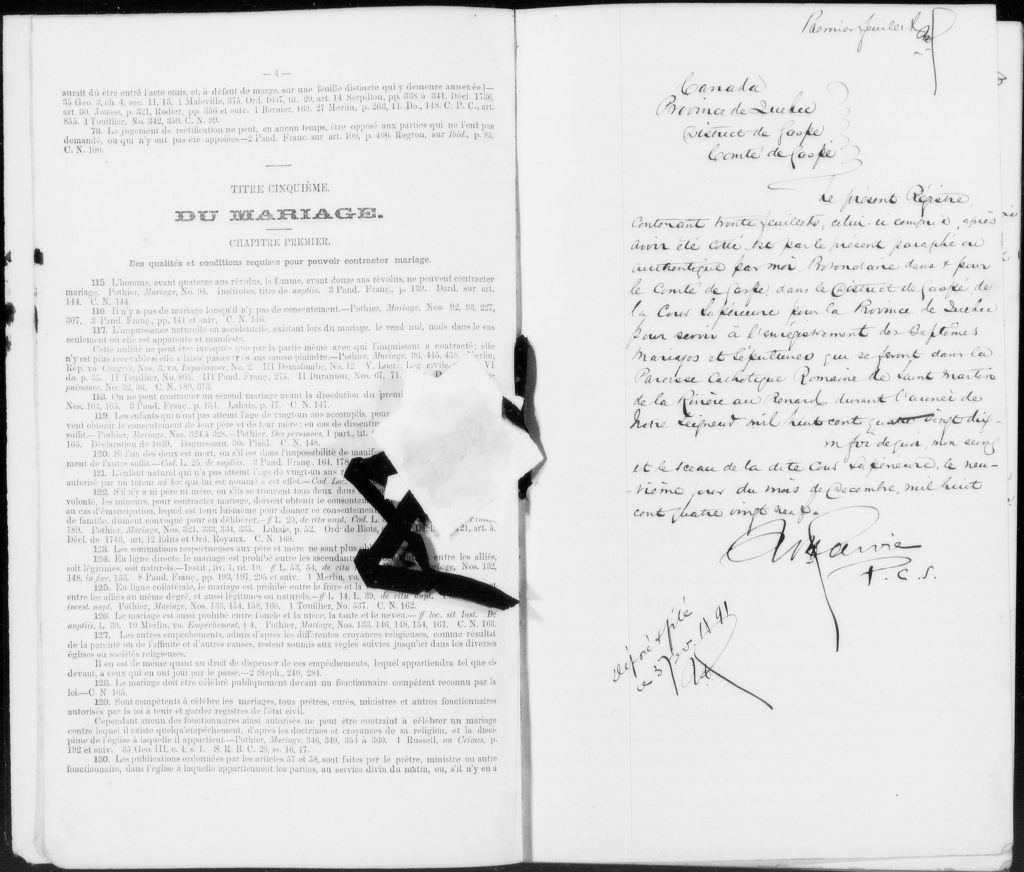 — 4 —
aurait dû être entré l'acte omis, et, à défaut de marge, sur une feuille distincte qui y demeure annexée.|—
35 Geo. 3, ch. 4, sec. 11, 13. 1 Maleville, 375. Ord. 1667, tit. 20, art. 14 Serpillon, pp. 338 à 341. Décl 1736,
art. 30. Jousse, p. 321, Rodier, pp. 356 et suiv. 1 Bornier, 169. 27 Merlin, p. 263, 11. Do., 148. C. P. C., art.
855. 1 Toullier, No. 342, 350. C. N. 99.
78. Le jugement de rectification ne peut, en aucun temps, être opposé aux parties qui ne l'ont pas
demandé, ou qui n'y ont pas été appelées—2 Pand. Franc. sur art. 100, p. 406. Rogron, sur Ibid., p. 85.
C. N. 100.
TITRE CINQUIÈME.
DU MARIAGE.
CHAPITRE PREMIER.
Des qualités et conditions requises pour pouvoir contracter mariage.
115. L'homme, avant quatorze ans révolus, la femme, avant douze ans révolus, ne peuvent contracter
mariage. Pothier, Mariage, No. 94. Institutes, titre de nuptiis. 3 Pand. Franç., p. 139. Dard, sur art.
144. C. N. 144.
116. Il n'y a pas de mariage lorsqu'il n'y a pas de consentement.—Pothier, Mariage, Nos. 92, 93, 227,
307. 3 Pand. Franç., pp. 141 et suiv. C. N. 146.
117. L'impuissance naturelle ou accidentelle, existant lors du mariage, le rend nul, mais dans le cas
seulement où elle est apparente et manifeste.
Cette nullité ne peut être invoquée que par la partie même avec qui l'impuissant a contracté; elle
n'y est plus recevable si elle a laissé passer trois ans sans se plaindre.—Pothier, Mariage, 96, 445, 458. Merlin,
Rép. vo. Congrès, Nos. 3, vo. Impuissance, No. 2. III Demolombe, No. 12. V. Locré, Leg. civile, VI
do, p. 35. II Toullier, No. 805. III Pand. Franç., 275. II Duranton, Nos. 67, 71.
puissance, No. 32, 36. C. N. 180, 313.
118. On ne peut contracter un second mariage avant la dissolution du premier
Nos. 103, 105. 3 Pand. Franç., p. 154. Lahaie, p. 47. C. N. 147.
119. Les enfants qui n'ont pas atteint l'âge de vingt-un ans accomplis, pour
vent obtenir le consentement de leur père et de leur mère; en cas de dissentiment
suffit.—Pothier, Mariage, Nos. 324 à 328.—Pothier, Des personnes, 1 part., tit.
165. Déclaration de 1639. Daguesseau, 30e Plaid. C. N. 148.
120. Si l'un des deux est mort, ou s'il est dans l'impossibilité de manifester
ment de l'autre suffit.—Cod. L. 25, de nuptiis. 3 Pand. Franç. 164, 178
121. L'enfant naturel qui n'a pas atteint l'âge de vingt-un ans
autorisé par un tuteur ad hoc qui lui est nommé à cet effet.—Cod Loc.
122. S'il n'y a ni père ni mère, ou s'ils se trouvent tous deux dans
volonté, les mineurs, pour contracter mariage, doivent obtenir le consentement
au cas d'émancipation, lequel est tenu lui-même pour donner ce consentement
de famille, dûment convoqué pour en délibérer.—ff L. 20, de ritu nupt. Cod. L.
189. Pothier, Mariage, Nos. 321, 333, 334, 335. Lahaie, p. 52. Ord. de Blois, 21, art. 5.
Décl. de 1743, art. 12 Edits et Ord. Royaux. C. N. 160.
123. Les sommations respectueuses aux père et mère ne sont plus
124. En ligne directe, le mariage est prohibé entre les ascendants entre les alliés,
soit légitimes, soit naturels.—Instit., liv. 1, tit. 10. ff L. 53, 54, de ritu Mariage, Nos. 132,
148, in fine, 153. 3 Pand. Franç., pp. 193, 197, 205 et suiv. 1 Merlin, vo.
125. En ligne collatérale, le mariage est prohibé entre le frère et la
entre les alliés au même dégré, et aussi légitimes ou naturels.—ff L. 14, L. 39, de ritu nupt. Cod.
incest. nupt. Pothier, Mariage, Nos. 133, 154, 158, 160. 1 Toullier, No. 537. C. N. 162.
126. Le mariage est aussi prohibé entre l'oncle et la nièce, la tante et le neveu.—ff loc. sit Inst. De
nuptiis, L. 39. 10 Merlin, vo. Empêchement, § 4. Pothier, Mariage, Nos. 133, 146, 148, 154, 161. C. N. 163.
127. Les autres empêchements, admis d'après les différentes croyances religieuses, comme résultat
de la parenté ou de l'affinité et d'autres causes, restent soumis aux règles suivies jusqu'ici dans les diverses
églises ou sociétés religieuses.
Il en est de même quant au droit de dispenser de ces empêchements, lequel appartiendra tel que ci-
devant, à ceux qui en ont joui par le passé.—2 Steph., 240, 284.
128. Le mariage doit être célébré publiquement devant un fonctionnaire compétent reconnu par la
loi.—C. N 165.
129. Sont compétents à célébrer les mariages, tous prêtres, curés, ministres et autres fonctionnaires
autorisés par la loi à tenir et garder registres de l'état civil.
Cependant aucun des fonctionnaires ainsi autorisés ne peut être contraint à célébrer un mariage
contre lequel il existe quelqu'empêchement, d'après les doctrines et croyances de sa religion, et la disci-
pline de l'église à laquelle il appartient.—Pothier, Mariage, 346, 349, 354 à 360. 1 Russell, on Crimes, p.
192 et suiv. 35 Geo. III, c. 4, s. 1. S. R. B. C. 20, ss. 16, 17.
130. Les publications ordonnées par les articles 57 et 58, sont faites par le prêtre, ministre ou autre
fonctionnaire, dans l'église à laquelle appartiennent les parties, au service divin du matin, ou, s'il n'y en a
Premier feuillet
Canada
Province de Quebec
District de Gaspé
Comté de Gaspé
Le présent Régistre,
contenant trente feuillets, celui-ci compris, après
avoir été coté, est par le présent paraphé ou
authentiqué par moi Protonotaire dans & pour
le Comté de Gaspé, dans le District de Gaspé de
la Cour Supérieure pour la Province de Quebec
pour servir à l'enrégistrement des Baptêmes
Mariages et Sépultures qui se feront dans la
Paroisse Catholique Romaine de Saint Martin
de la Rivière au Renard durant l'année de
Notre Seigneur mil huit cent quatre vingt dix-
en foi de quoi, mon seing
et le sceau de la dite Cour Supérieure, le neu-
-vième jour du mois de Decembre, mil huit
cent quatre vingt neuf
P. C. S.
déposé & filé
ce 3 Fév. 1891